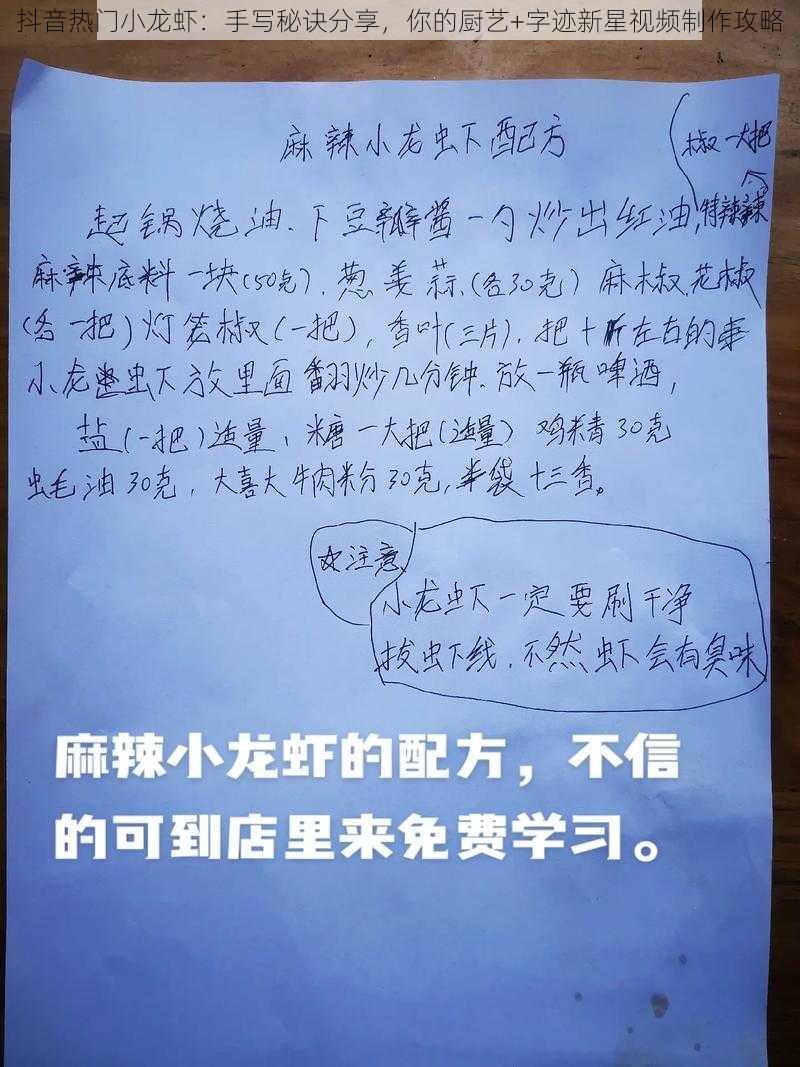 抖音热门小龙虾：手写秘诀分享，你的厨艺+字迹新星视频制作攻略
麻辣小龙虾配方
椒一大把
起锅烧油.下豆瓣酱一勺炒出红油,特辣辣
麻辣底料一块(50克).葱姜蒜.(各30克)麻椒.花椒
(各一把)灯笼椒(一把),香叶(三片).把十斤左右的
小龙虾放里面翻炒几分钟.放一瓶啤酒,
盐(一把)适量、糖一大把(适量)鸡精30克
蚝油30克,大喜大牛肉粉30克,半袋十三香。
☆注意
小龙虾一定要刷干净
拔虾线.不然虾会有臭味
麻辣小龙虾的配方，不信
的可到店里来免费学习。